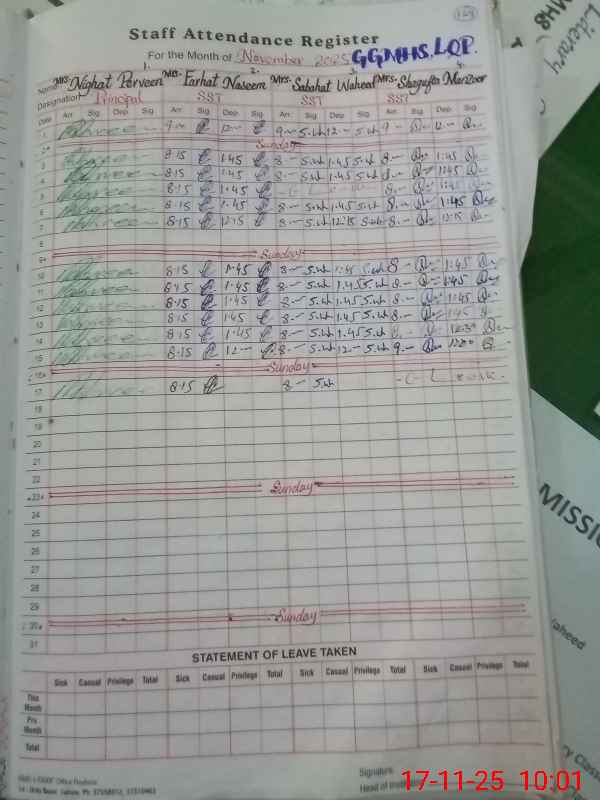 169
Staff Attendance Register
For the Month of November 2025 GGMHS. LQP.
1. 2. 3. 4.
Name Mrs. Nighat Parveen Mrs. Farhat Naseem Mrs. Sabahat Waheed Mrs. Shagufta Manzoor
Designation Principal SST SST SST
Date Arr. Sig. Dep. Sig. Arr. Sig. Dep. Sig. Arr. Sig. Dep. Sig. Arr. Sig. Dep. Sig.
1 9- 12- 9- S.wh 12- S.wh 9- 12-
2 Sunday
3 8.15 1.45 8- S.wh 1.45 S.wh 8- 1.45
4 8.15 1.45 8- S.wh 1.45 S.wh 8- 1.45
5 8.15 1.45 C L 8- 1.45
6 8.15 1.45 8- S.wh 1.45 S.wh 8- 1.45
7 8.15 12.15 8- S.wh 12.15 S.wh 8- 12.15
8
9 Sunday
10 8.15 1.45 8- S.wh 1.45 S.wh 8- 1.45
11 8.15 1.45 8- S.wh 1.45 S.wh 8- 1.45
12 8.15 1.45 8- S.wh 1.45 S.wh 8- 1.45
13 8.15 1.45 8- S.wh 1.45 S.wh 8- 1.45
14 8.15 1.45 8- S.wh 1.45 S.wh 8-
15 8.15 12- 8- S.wh 12- S.wh 9-
16 Sunday
17 8.15 8- S.wh - C - L
18
19
20
21
22
23 Sunday
24
25
26
27
28
29
30 Sunday
31
STATEMENT OF LEAVE TAKEN
Sick Casual Privilege Total Sick Casual Privilege Total Sick Casual Privilege Total Sick Casual Privilege Total
This Month
Prv Month
Total
Signature
Head of
14 - Urdu Bazar Lahore. Ph:
MISSIO
aheed
ry Class
Literary
17-11-25 10:01